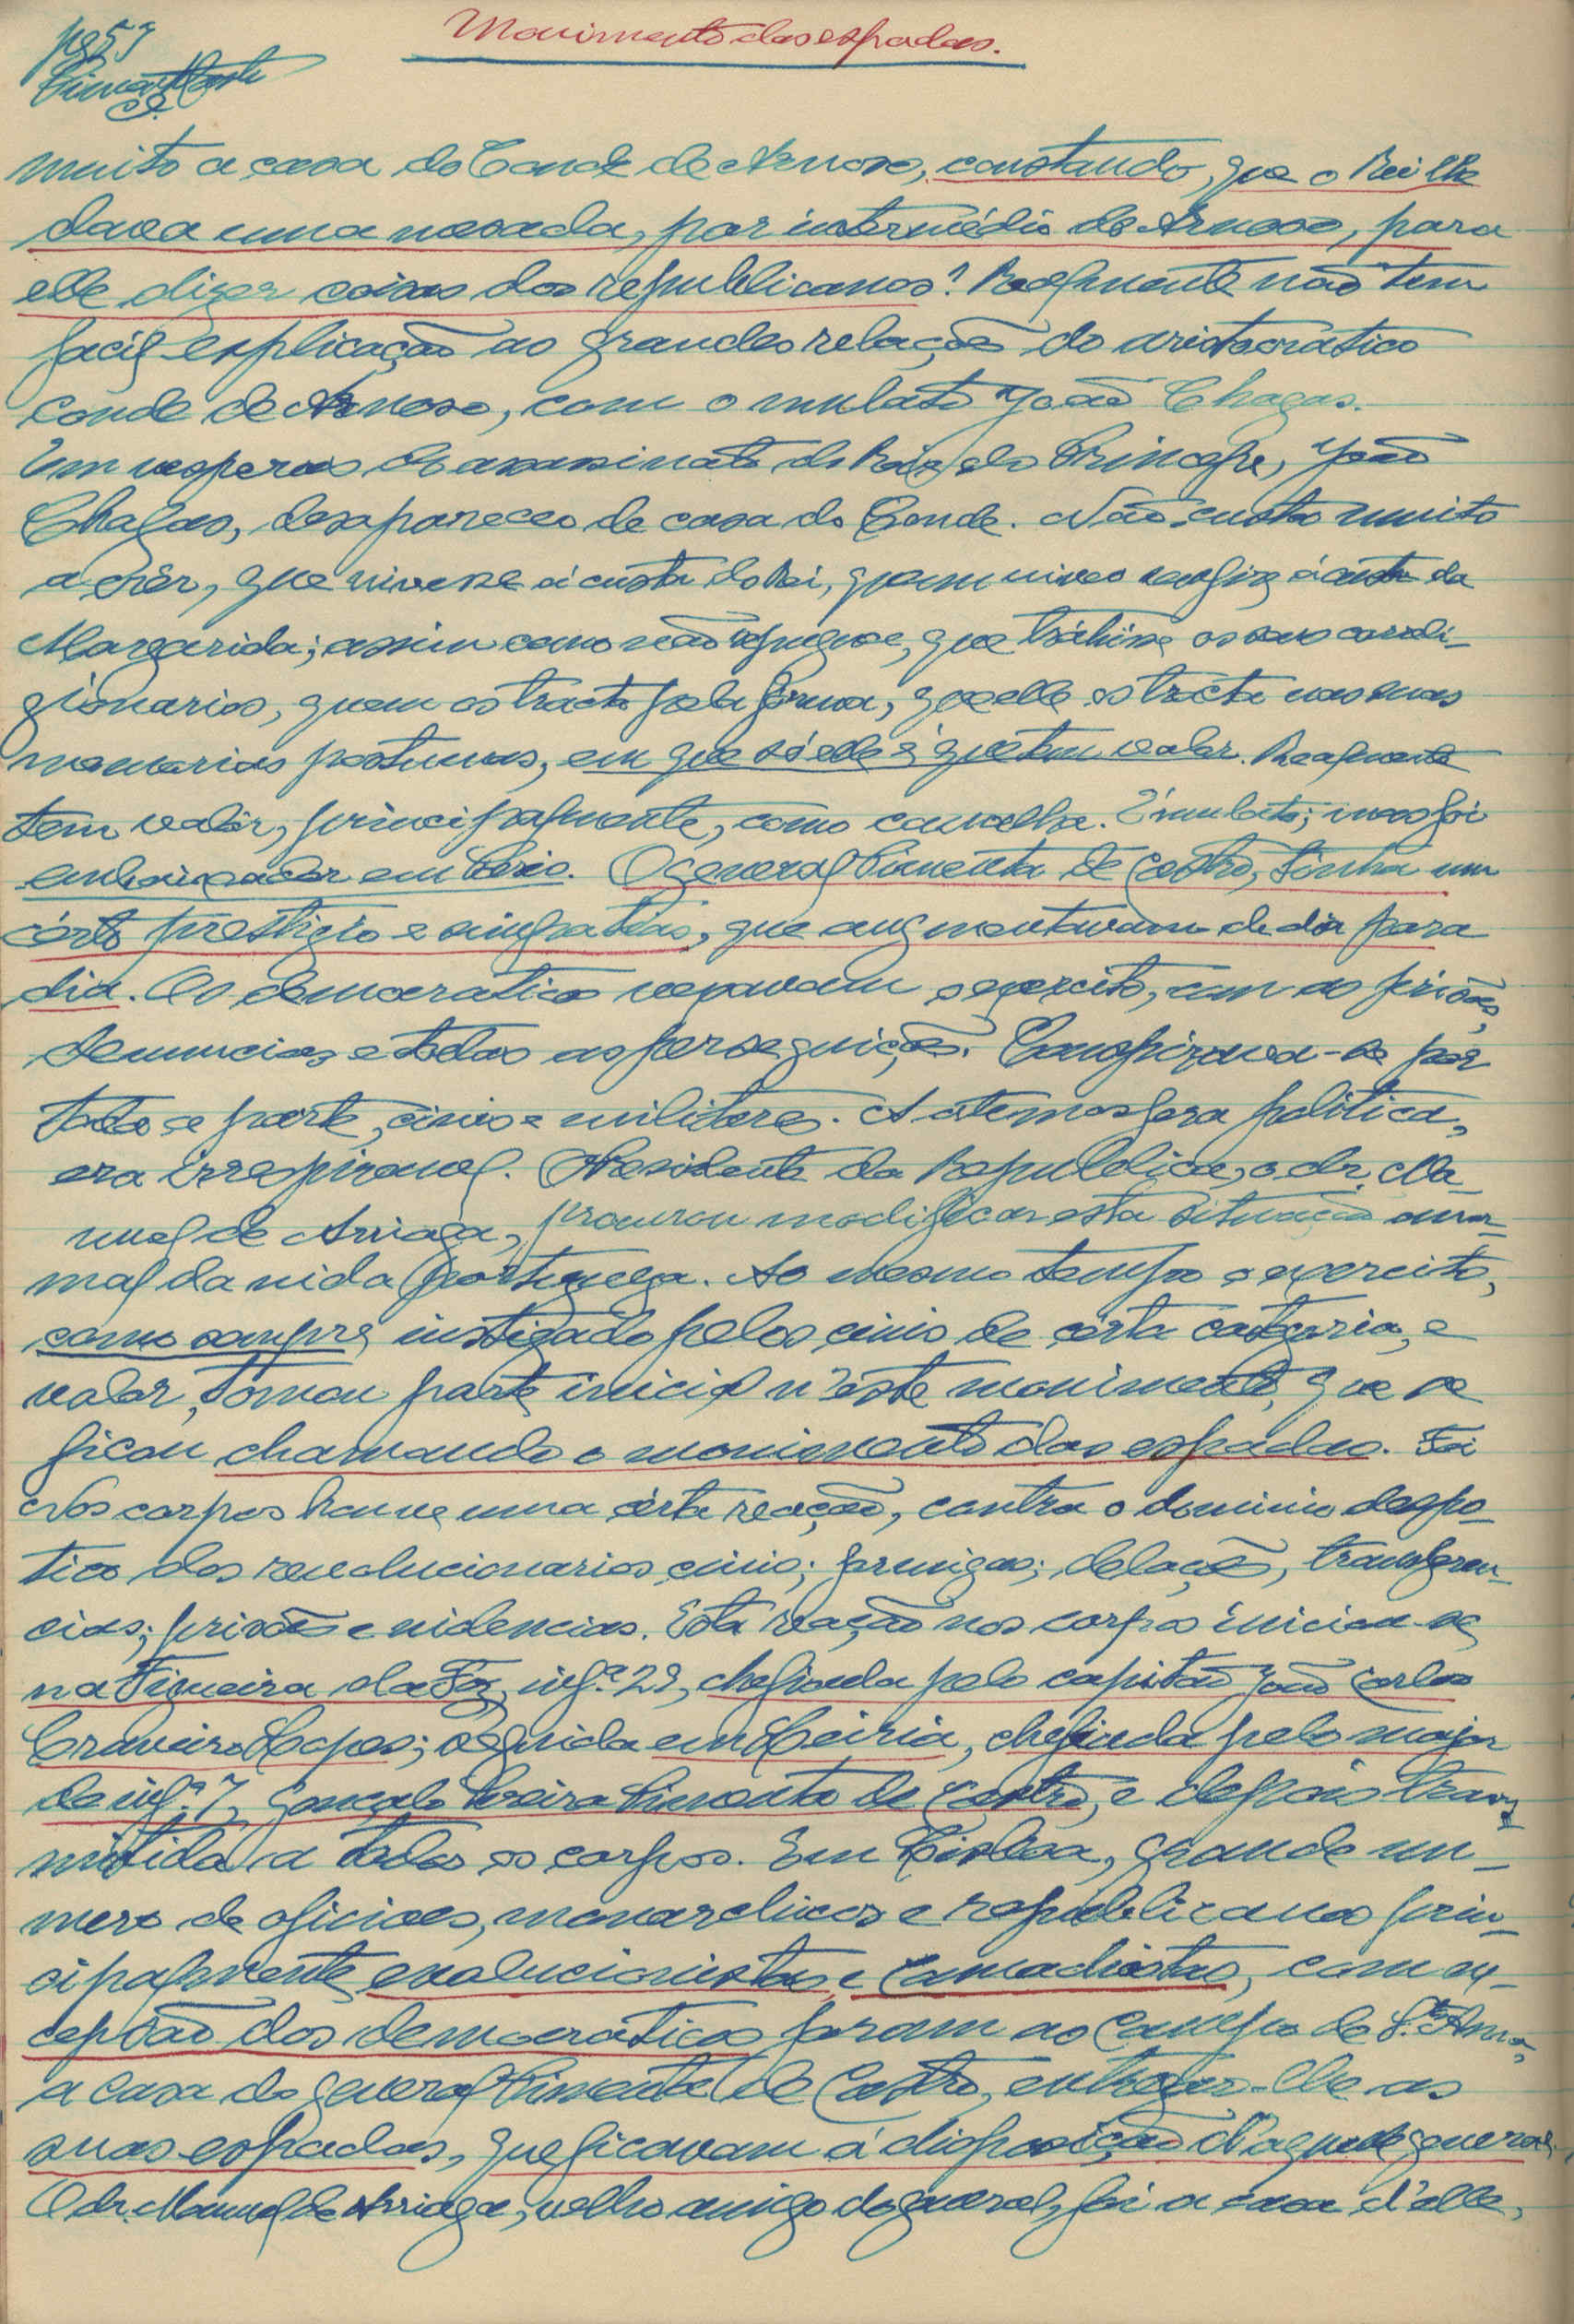 pg 53
Movimento das espadas.
Pimenta Castro
muito a casa do Conde de Arnoso, constando, que o Rei lhe
dava uma mesada, por intermédio de Arnoso, para
elle dizer coisas dos republicanos! Realmente não tem
facil explicação as grandes relações do aristocratico
conde de Arnoso, com o mulato João Chagas.
Em vesperas do assassinato do Rei e do Principe, João
Chagas, desapareceo de casa do Conde. Não custa muito
a crêr, que vivesse á custa do Rei, quem viveo á custa da
Margarida; assim como não repugna, que trahisse os seus corréli-
gionarios, quem os tracta pela forma, que elle os tracta nas suas
memorias postumas, em que só elle é que tem valor. Realmente
tem valôr, principalmente, como canalha. É mulato; mas foi
embaixador em Paris. O general Pimenta de Castro, tinha um
cérto prestigio e simpatias, que augmentavam de dia para
dia. Os democraticos vexavam o exercito, com as prisões,
denuncias e todas as perseguições. Conspirava-se por
toda a parte, civis e militares. A atemosfera politica,
era irrespiravel. O Presidente da Republica, o dr. Ma-
nuel de Arriaga, procurou modificar esta situação anor-
mal da vida portugueza. Ao mesmo tempo o exercito,
como sempre instigado pelos civis de cérta categoria, e
valor, tomou parte inicial n'este movimento, que se
ficou chamando o movimento das espadas. Foi
Nos corpos houve uma cérta reação, contra o dominio despo-
tico dos revolucionarios civis; formigas; delações, transferen-
cias; prisões e videncias. Esta reação nos corpos iniciou-se
na Figueira da Foz, inf.ª 28, chefiada pelo capitão João Carlos
Craveiro Lopes; seguida em Leiria, chefiada pelo major
de inf.ª 7, Gonçalo Pereira Pimenta de Castro, e depois trans
mitida a todos os corpos. Em Lisboa, grande nu-
mero de oficiaes, monarchicos e republicanos prin-
cipalmente evolucionistas e camachistas, com ex-
cepção dos democraticos foram ao Campo de S.ta Anna,
a casa do general Pimenta de Castro, entregar-lhe as
suas espadas, que ficavam á disposição d'aquele general.
O dr. Manuel de Arriaga, velho amigo do general, foi a casa d'elle,